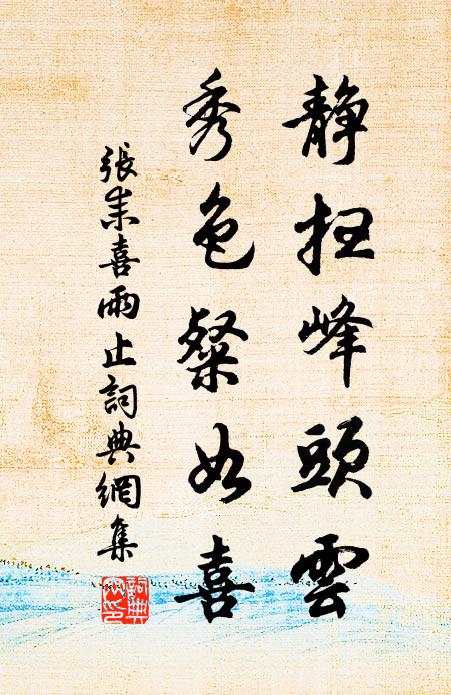 静掃峰頭雲
秀色粲如喜
張耒喜雨止詞典網集